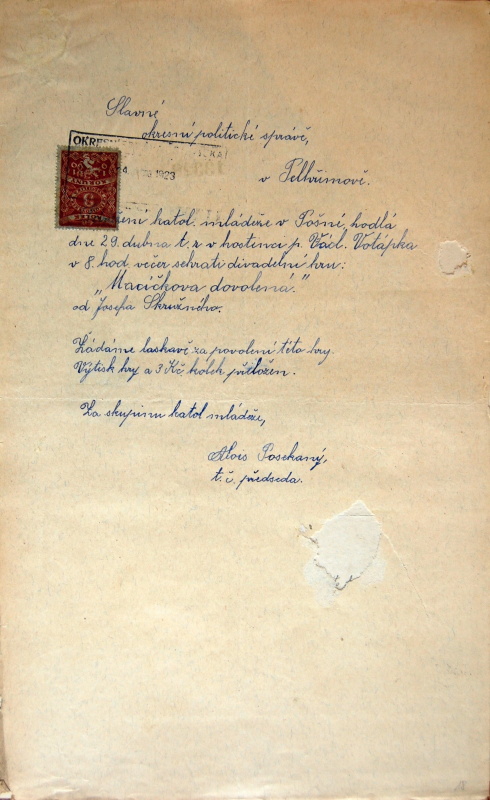 Slavné
okresní politické správě,
OKRESNÍ
1923
v Pelhřimově.
ení katol. mládeže v Pošné, hodlá
dne 29. dubna t. r. v hostinci p. Václ. Votápka
v 8. hod. večer sehrati divadelní hru:
„Macíčkova dovolená."
od Josefa Skružného.
Žádáme laskavě za povolení této hry.
Výtisk hry a 3 Kč kolek přiložen.
Za skupinu katol mládeže,
Alois Posekaný,
t. č. předseda.